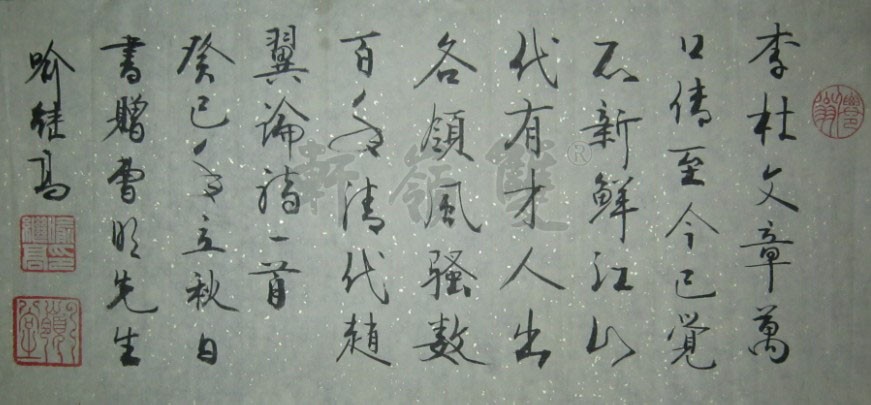 李杜文章萬
口傳至今已覺
不新鮮江山
代有才人出
各領風騷數
百年清代趙
翼論詩一首
癸巳年立秋日
書贈曹明先生
喻继高
雙嶺軒®